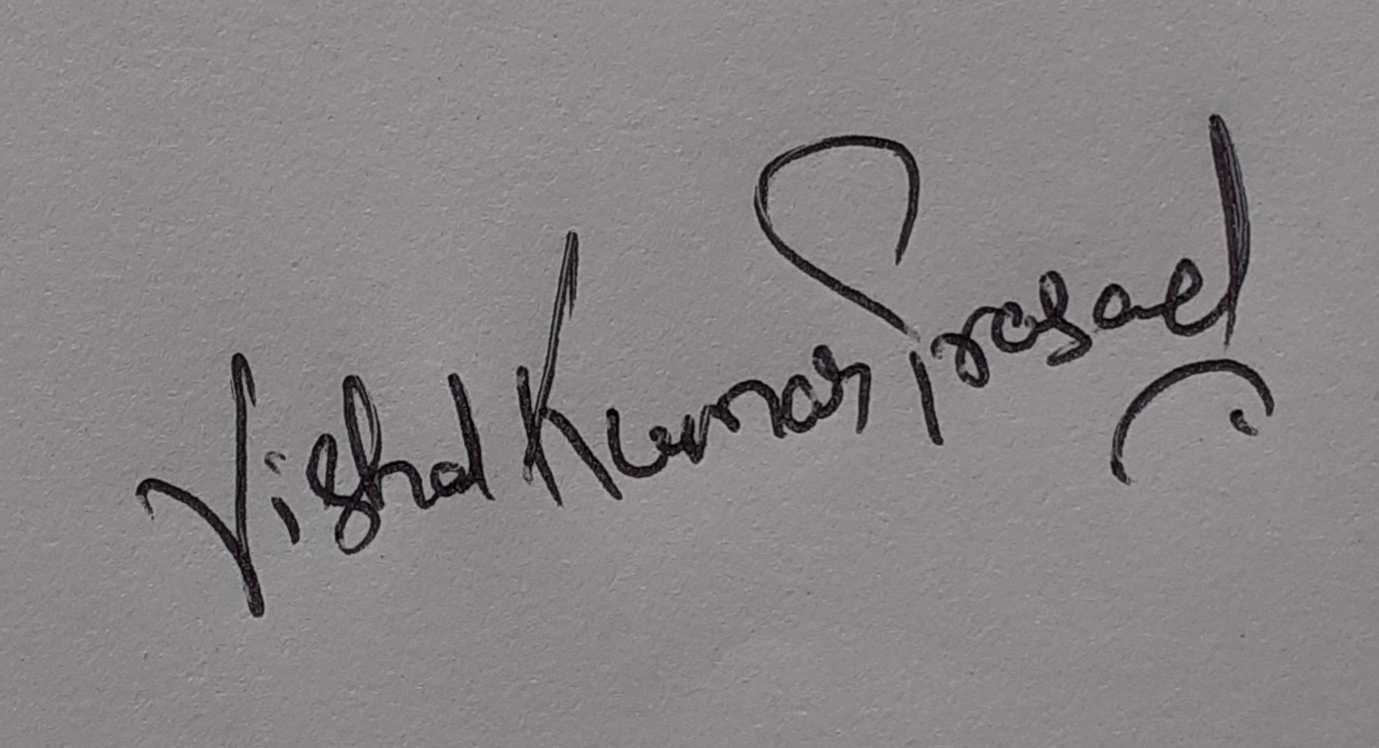 Vishal Kumar Prasad